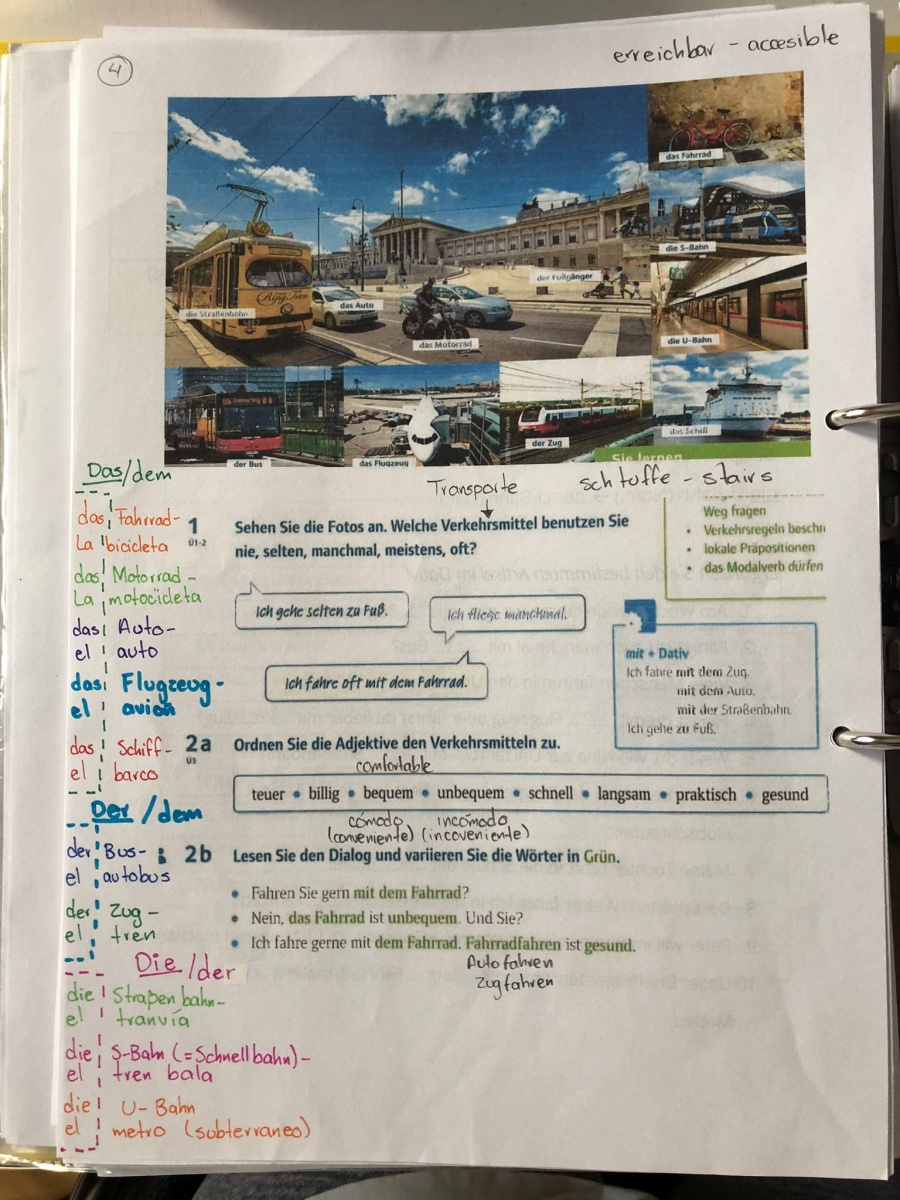 4
erreichbar - accesible
das Fahrrad
die S-Bahn
der Fußgänger
die Straßenbahn
das Auto
das Motorrad
die U-Bahn
der Bus
das Flugzeug
der Zug
das Schiff
Sie lernen
Das/dem
Transporte
schtuffe - stairs
das Fahrrad-
La bicicleta
das Motorrad -
La motocicleta
das Auto-
el auto
das Flugzeug-
el avión
das Schiff-
el barco
Der/dem
der Bus-
el autobus
der Zug -
el tren
Die/der
die Straßenbahn-
el tranvía
die S-Bahn (=Schnellbahn) -
el tren bala
die U-Bahn
el metro (subterraneo)
1 Sehen Sie die Fotos an. Welche Verkehrsmittel benutzen Sie
Ü1-2
nie, selten, manchmal, meistens, oft?
Weg fragen
• Verkehrsregeln beschr
• lokale Präpositionen
• das Modalverb dürfen
Ich gehe selten zu Fuß.
Ich fliege manchmal.
Ich fahre oft mit dem Fahrrad.
mit + Dativ
Ich fahre mit dem Zug.
mit dem Auto.
mit der Straßenbahn.
Ich gehe zu Fuß.
2a Ordnen Sie die Adjektive den Verkehrsmitteln zu.
Ü3
comfortable
teuer • billig • bequem • unbequem • schnell • langsam • praktisch • gesund
cómodo incómodo
(conveniente) (incoveniente)
2b Lesen Sie den Dialog und variieren Sie die Wörter in Grün.
• Fahren Sie gern mit dem Fahrrad?
• Nein, das Fahrrad ist unbequem. Und Sie?
• Ich fahre gerne mit dem Fahrrad. Fahrradfahren ist gesund.
Autofahren
Zugfahren